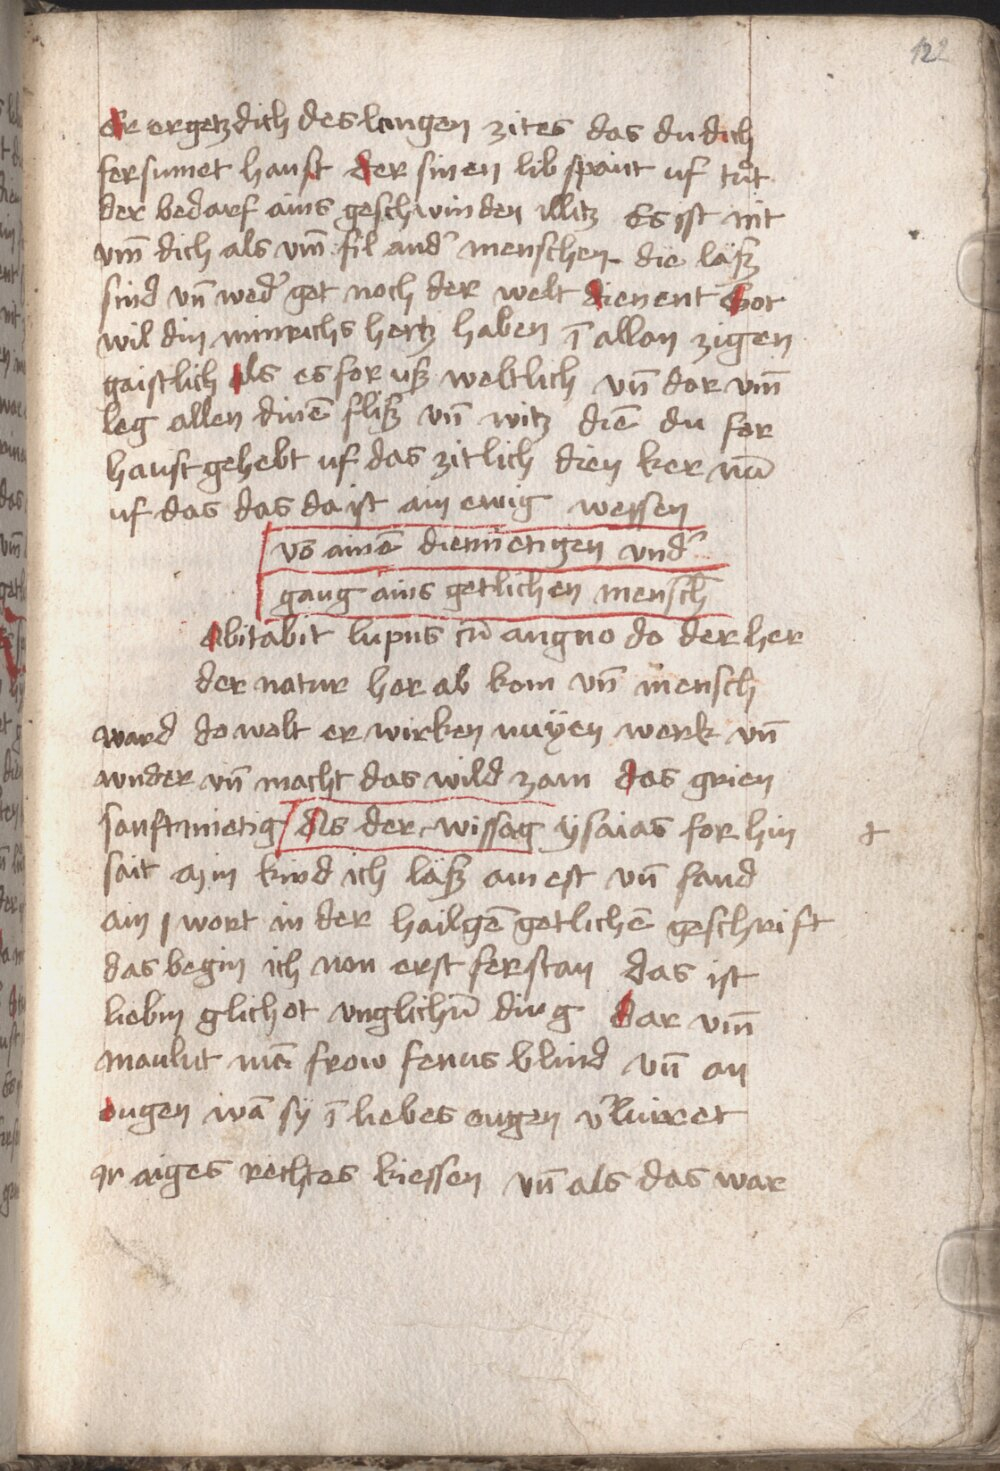 122
Er ergetz dich des langen zites das du dich
fersumet haust der sinen lib spant uf tuͦt
der bedarf ains geschwinden illitz Es ist nit
vm̄ dich als vm̄ fil and' menschen die läß
sind vn̄ wed' get noch der welt dienent Got
wil din minrichs hertz haben ī allan zigen
gaistlich als es for uß weltlich vn̄ dar vm̄
leg allen dinē fliß vn̄ witz diē du for
haust gehebt uf das zitlich dien ker nū
uf das das da ist ain ewig wessen
vō ainē diemietigen vnd'
gang ains getlichen mensch
abitabit lupus cū angno do der her
der natur her ab kom vn̄ mensch
ward do wolt er wirken nuÿen werk vn̄
wnder vn̄ macht das wild zam das grien
sanftmietig Als der wissag ÿsaias for hin
sait Min kind ich läß ainest vn̄ fand
ain wort in der hailgē getlichē geschrift
das begin ich non erst ferstan das ist
liebin glichet vnglichū ding dar vm̄
maulut mā frow fenus blind vn̄ an
ougen wā sÿ ī liebes ougen v'lieret
ir aiges rechtes kiessen vn̄ als das war